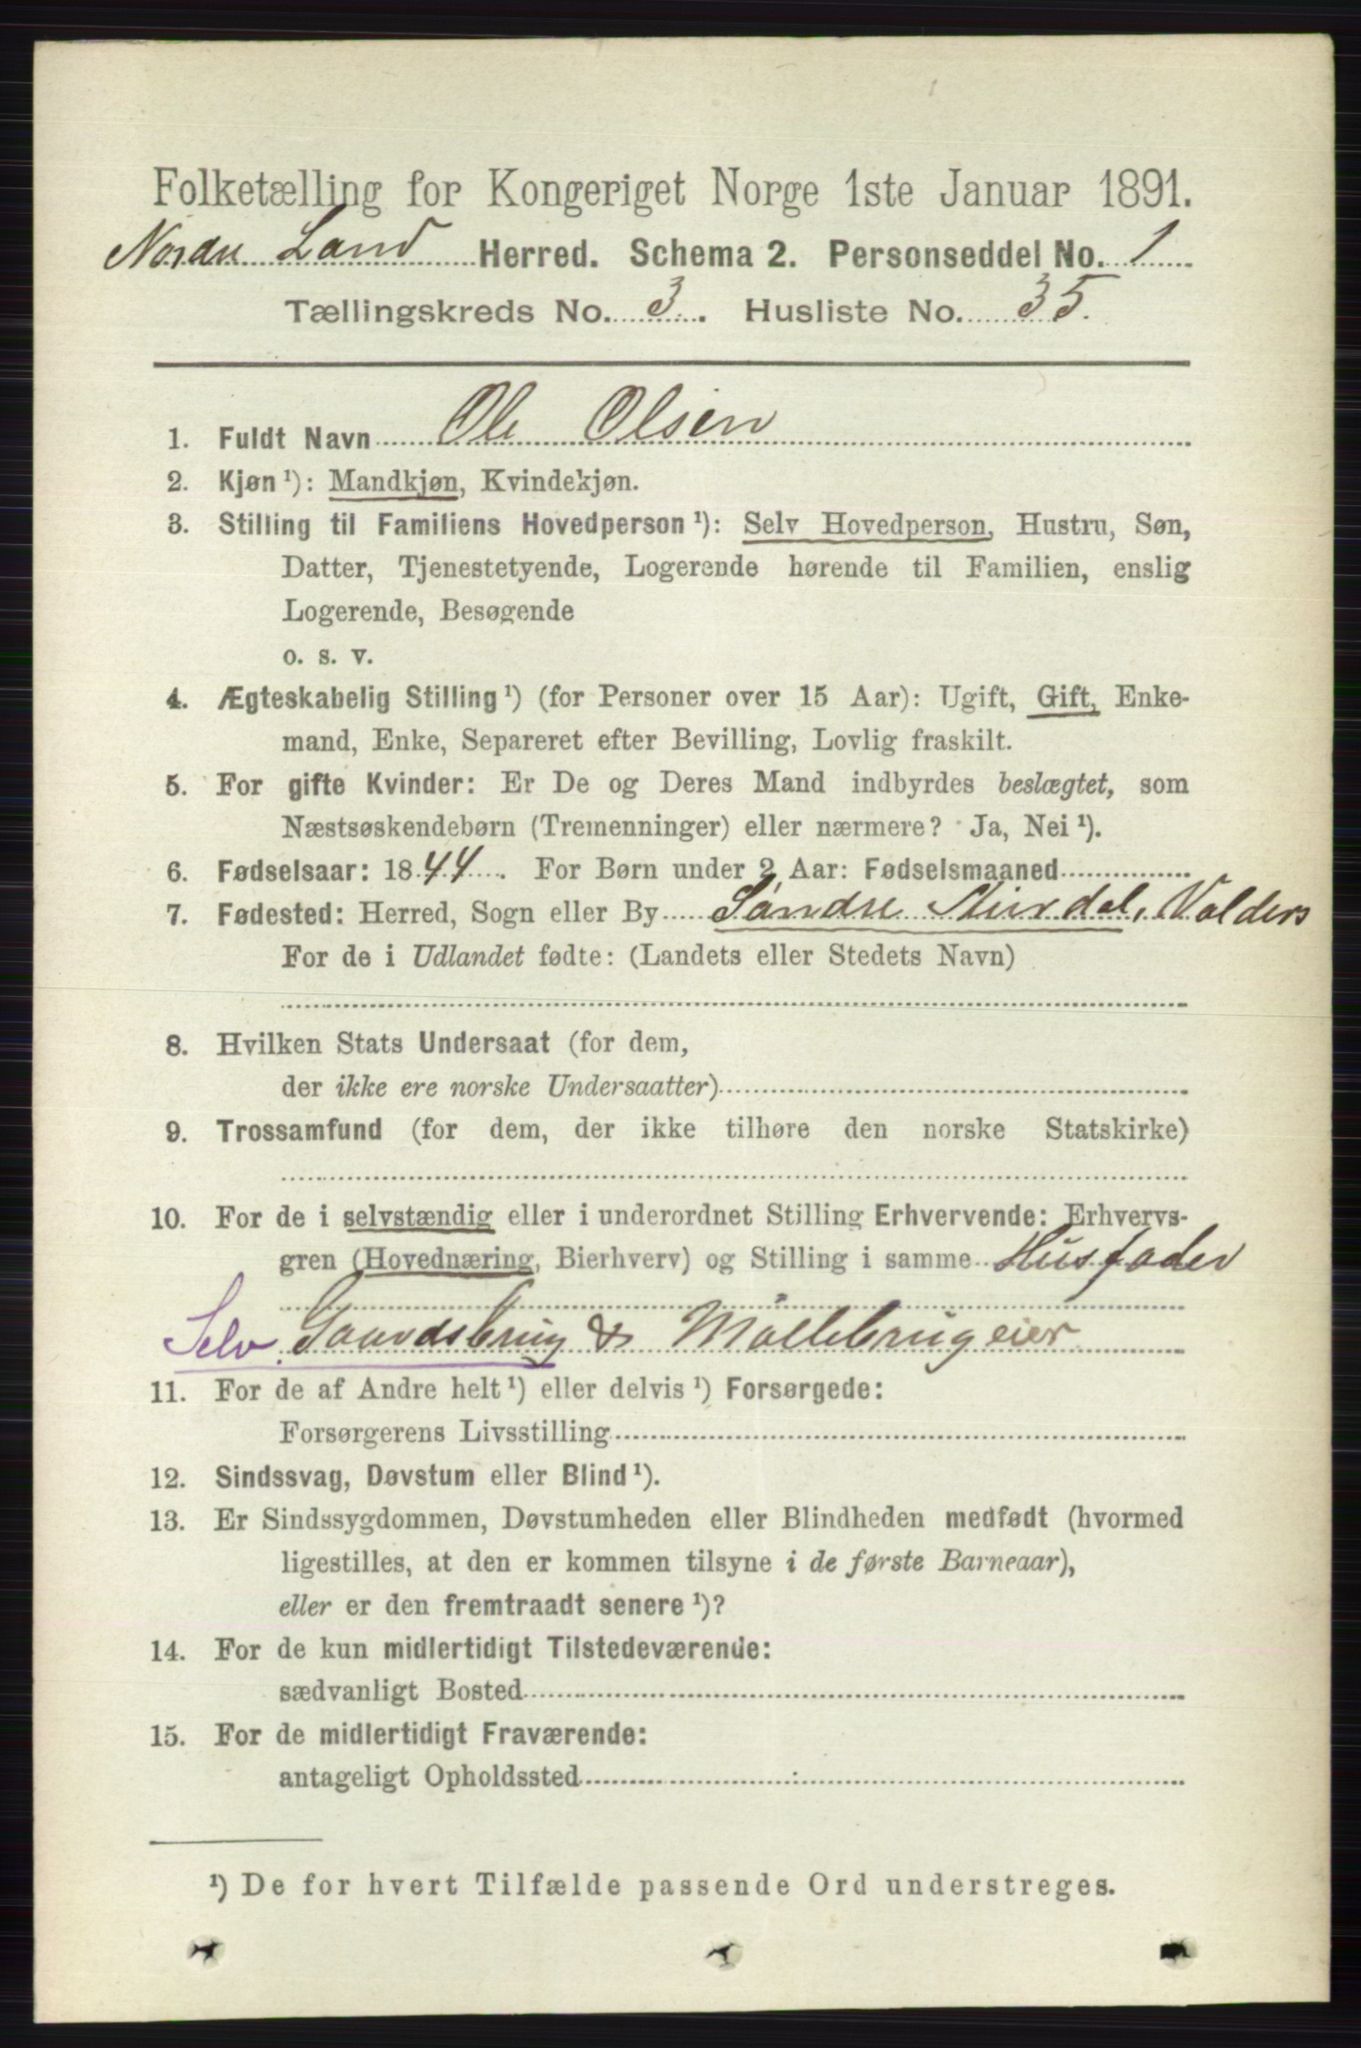 Folketælling for Kongeriget Norge 1ste Januar 1891.
Nordre Land Herred. Schema 2. Personseddel No. 1
Tællingskreds No. 3. Husliste No. 35.
1. Fuldt Navn Ole Olsen
2. Kjøn ¹): Mandkjøn, Kvindekjøn.
3. Stilling til Familiens Hovedperson ¹): Selv Hovedperson, Hustru, Søn,
Datter, Tjenestetyende, Logerende hørende til Familien, enslig
Logerende, Besøgende
o. s. v.
4. Ægteskabelig Stilling ¹) (for Personer over 15 Aar): Ugift, Gift, Enke-
mand, Enke, Separeret efter Bevilling, Lovlig fraskilt.
5. For gifte Kvinder: Er De og Deres Mand indbyrdes beslægtet, som
Næstsøskendebørn (Tremenninger) eller nærmere? Ja, Nei ¹).
6. Fødselsaar: 1844. For Børn under 2 Aar: Fødselsmaaned
7. Fødested: Herred, Sogn eller By Søndre Aurdal, Valders
For de i Udlandet fødte: (Landets eller Stedets Navn)
8. Hvilken Stats Undersaat (for dem,
der ikke ere norske Undersaatter)
9. Trossamfund (for dem, der ikke tilhøre den norske Statskirke)
10. For de i selvstændig eller i underordnet Stilling Erhvervende: Erhvervs-
gren (Hovednæring, Bierhverv) og Stilling i samme Husfader
Selv. Gaardsbrug & Møllebrugeier.
11. For de af Andre helt ¹) eller delvis ¹) Forsørgede:
Forsørgerens Livsstilling
12. Sindssvag, Døvstum eller Blind ¹).
13. Er Sindssygdommen, Døvstumheden eller Blindheden medfødt (hvormed
ligestilles, at den er kommen tilsyne i de første Barneaar),
eller er den fremtraadt senere ¹)?
14. For de kun midlertidigt Tilstedeværende:
sædvanligt Bosted
15. For de midlertidigt Fraværende:
antageligt Opholdssted
¹) De for hvert Tilfælde passende Ord understreges.